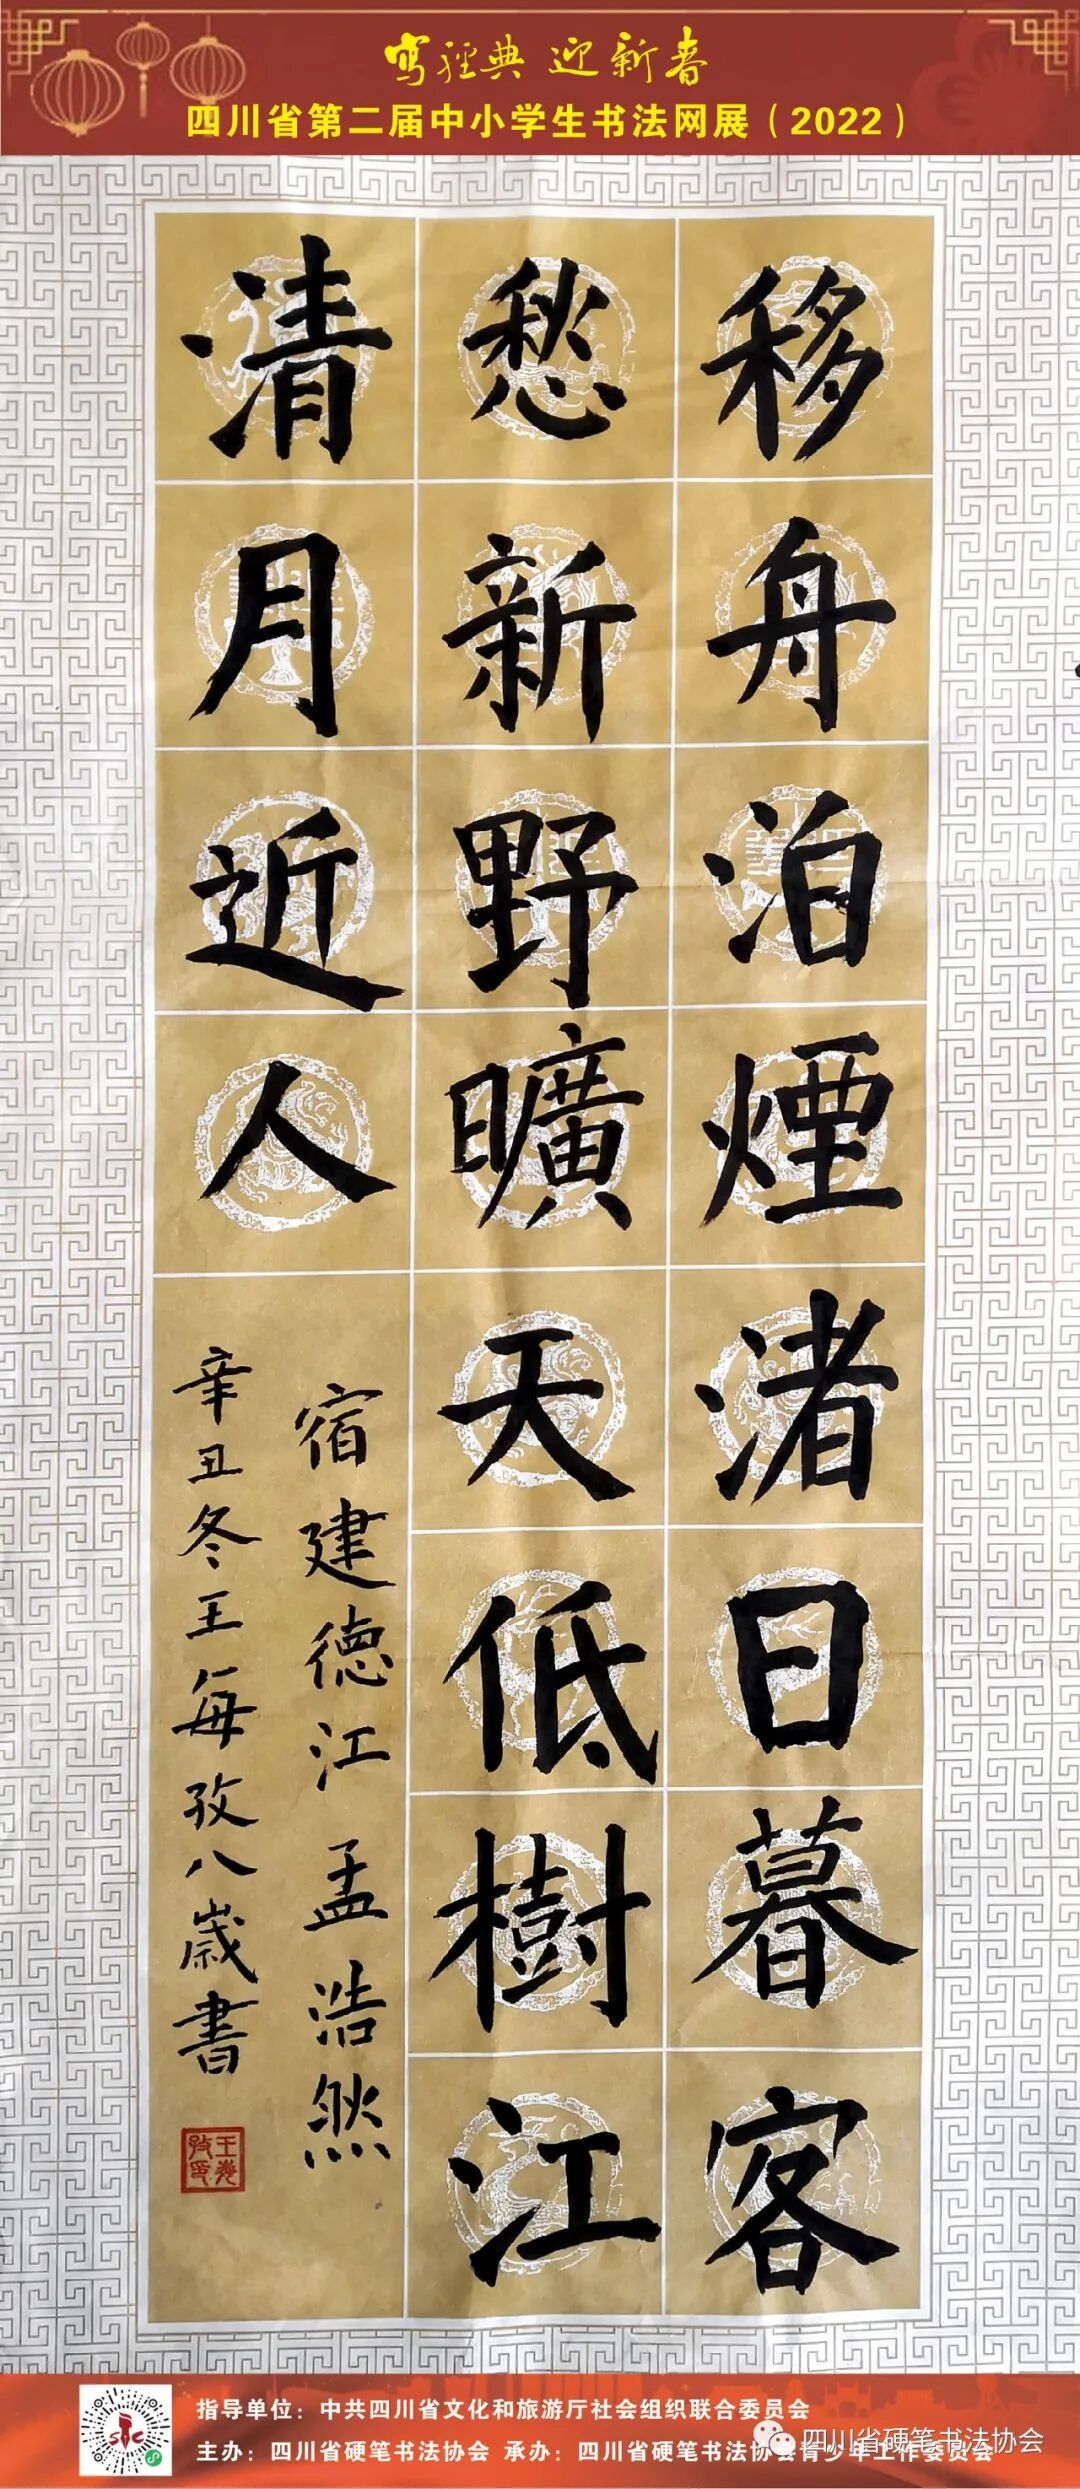 写經典 迎新春
四川省第二届中小学生书法网展（2022）
移舟泊煙渚日暮客
愁新野曠天低樹江
清月近人
宿建德江 孟浩然
辛丑冬王每孜八歲書
指导单位：中共四川省文化和旅游厅社会组织联合委员会
主办：四川省硬笔书法协会 承办：四川省硬笔书法协会青少年工作委员会
四川省硬笔书法协会